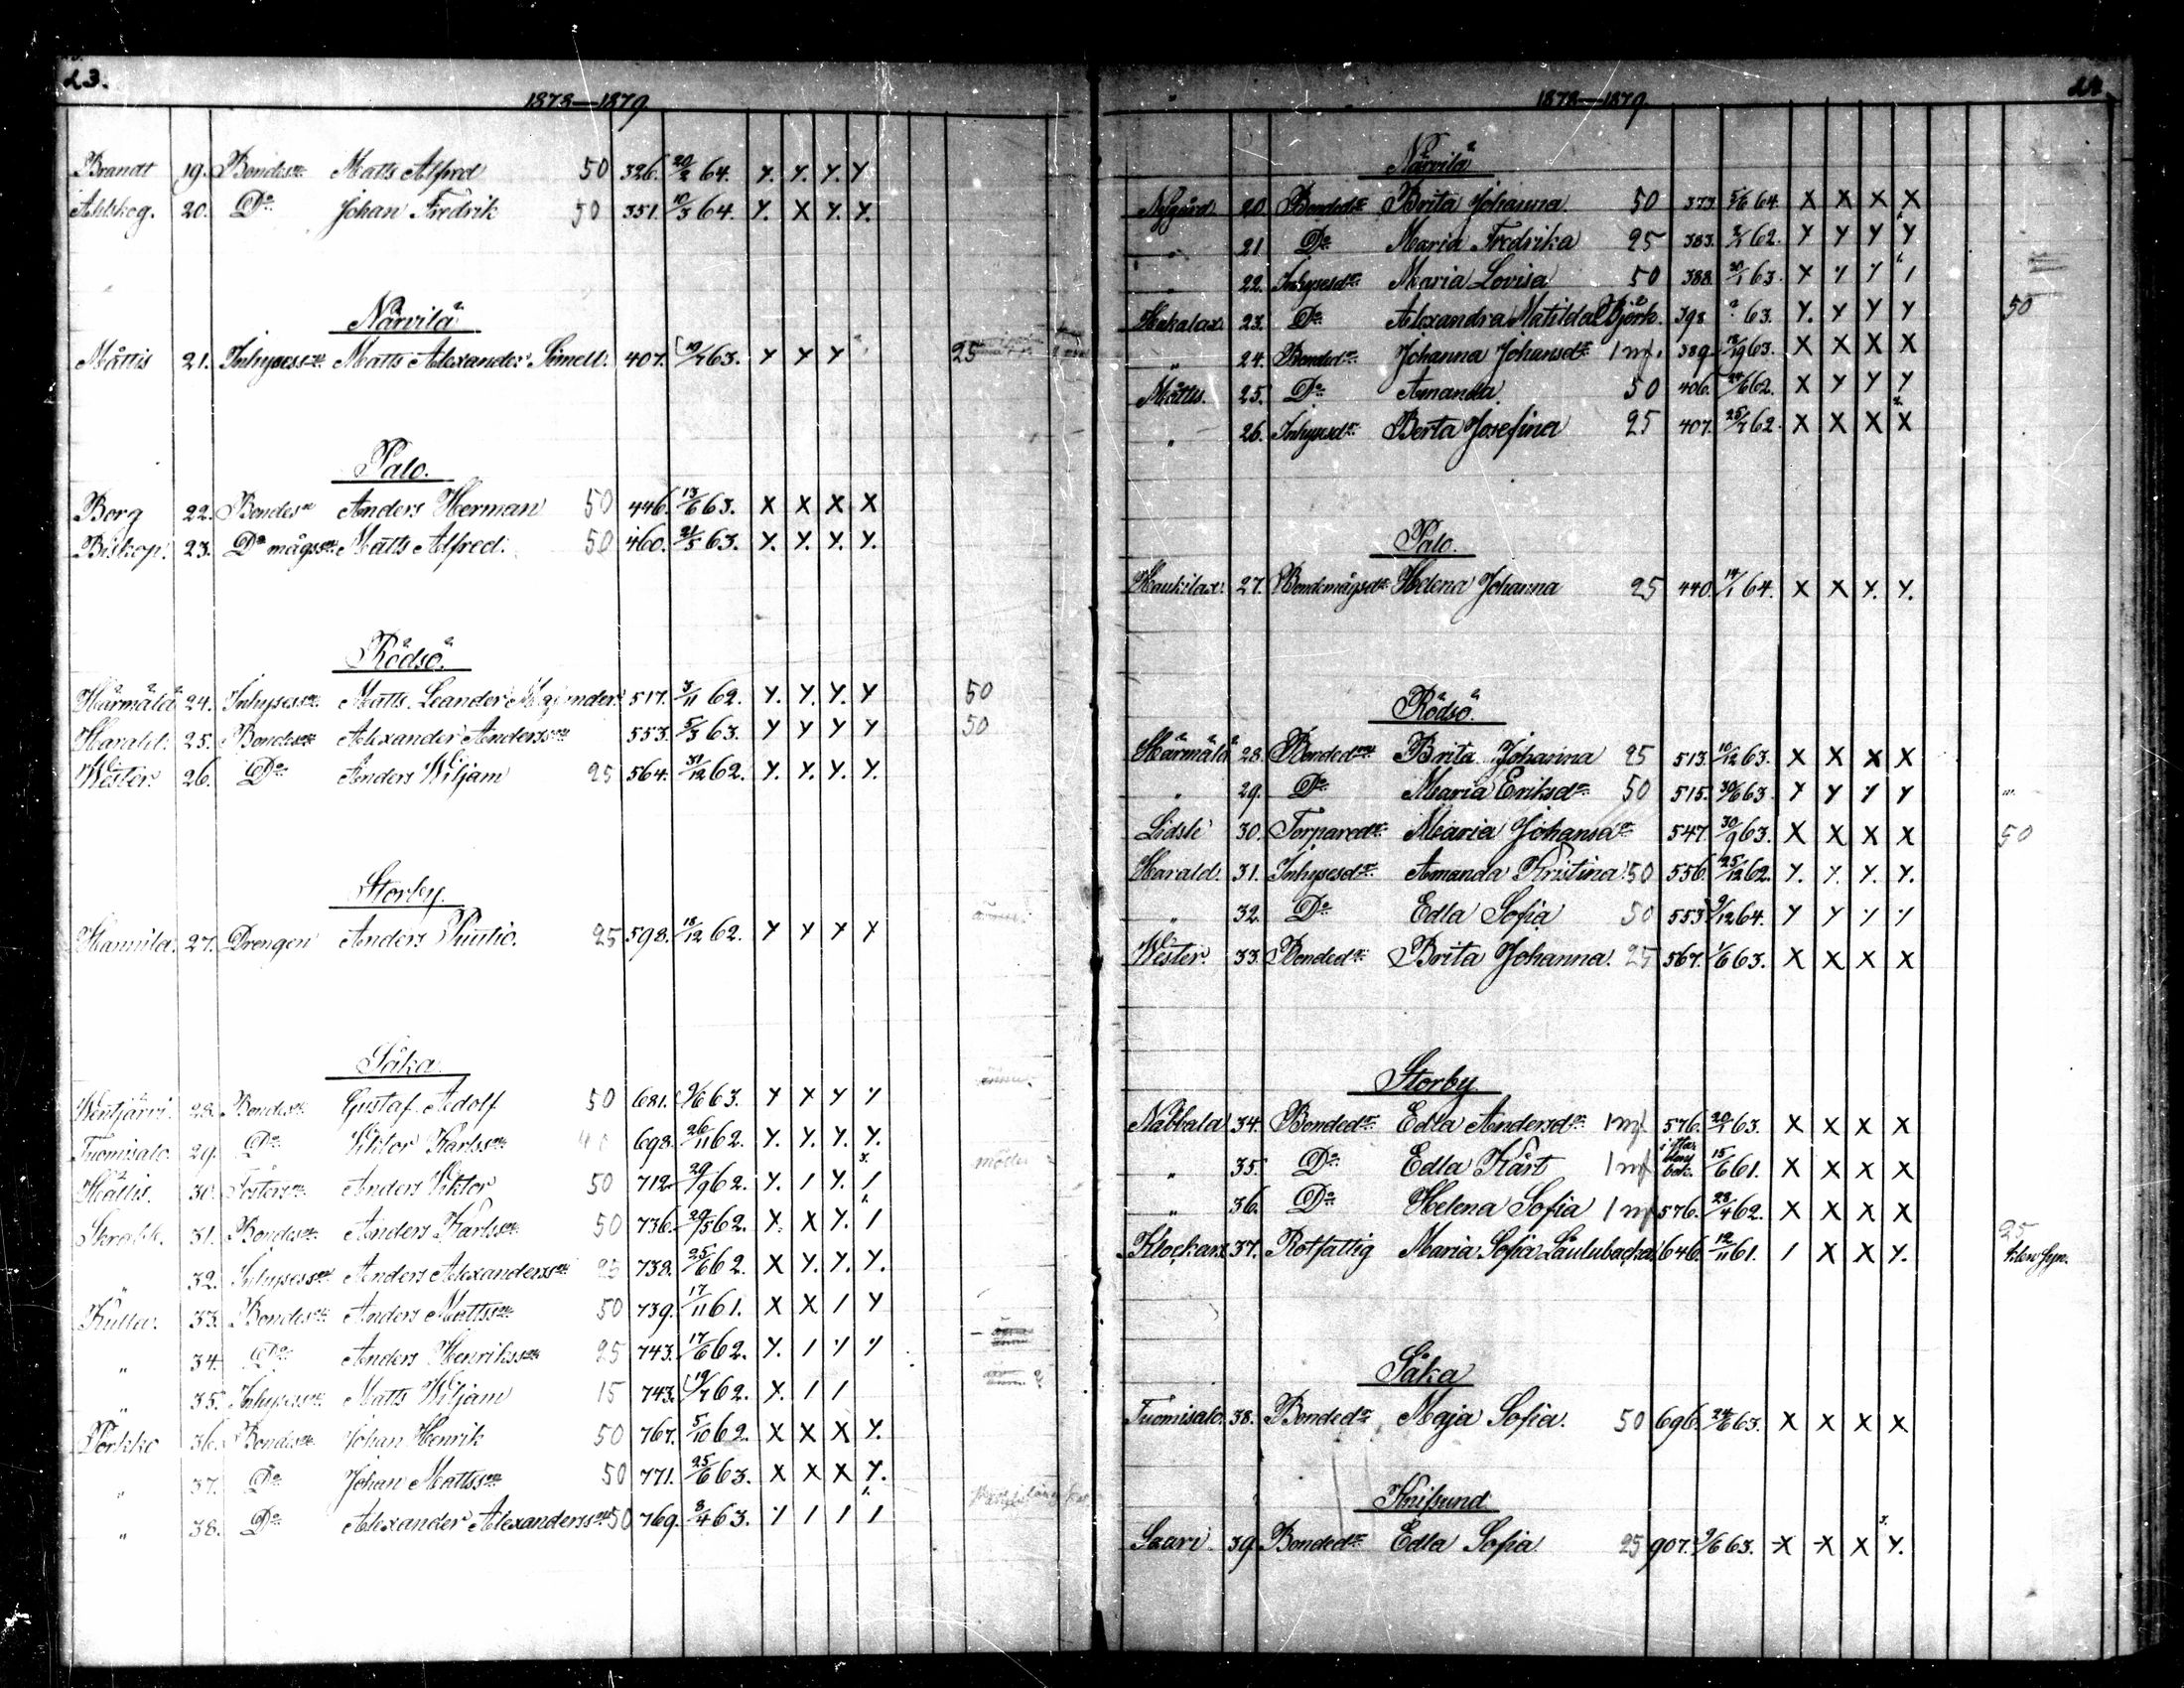 23.
1878—1879
Brandt 19. Bondeson Matts Alfred 50 326. 20/2 64. Y. Y. Y. Y
Ahlskog. 20. Do Johan Fredrik 50 351. 10/3 64. Y. X Y. Y.
Närvilä
Måttis 21. Inhysesson Matts Alexander Simell. 407. 10/7 63. Y Y Y 25
Palo.
Borg 22. Bondeson Anders Herman 50 446. 13/6 63. X X X X
Biskop. 23. Do mågsson Matts Alfred. 50 460. 21/5 63. Y. Y. Y. Y.
Rödsö.
Härmälä 24. Inhysesson Matts Leander 517. 3/11 62. Y. Y. Y. Y 50
Harald. 25. Bondeson Alexander Andersson 553. 5/3 63. Y Y Y Y 50
Wester. 26. Do Anders Wiljam 25 564. 31/12 62. Y. Y. Y. Y.
Storby.
Hannila. 27. Drengen Anders 25 598. 18/12 62. Y Y Y Y
Såka.
Wentjärvi. 28. Bondeson Gustaf Adolf 50 681. 9/6 63. Y X Y Y
Tuomisalo. 29. Do Viktor Karlsson 698. 26/11 62. Y. Y. Y. Y.
30. Fosterson Anders Viktor 50 712. 29/9 62. Y. / Y. / 3.
Skrabb. 31. Bondeson Anders Karlsson 50 736. 29/5 62. X. X Y. /
" 32. Inhysesson Anders Alexandersson 25 738. 25/6 62. X Y. Y. Y.
Kulla. 33. Bondeson Anders Mattsson 50 739. 17/11 61. X X / Y
" 34. Do Anders Henriksson 25 743. 17/6 62. Y. / Y Y
" 35. Inhysesson Matts Wiljam 15 743. 19/7 62. X. / /
Porkko 36. Bondeson Johan Henrik 50 767. 5/10 62. X X X Y.
" 37. Do Johan Mattsson 50 771. 25/6 63. X X X Y.
" 38. Do Alexander Alexandersson 50 769. 8/4 63. Y / / /
24
1878—1879
Närvilä
Nygård. 20. Bondedr Brita Johanna 50 373. 5/6 64. X X X X
" 21. Do Maria Fredrika 25 383. 62. Y Y Y Y
" 22. Inhysesdr Maria Lovisa 50 388. 20/1 63. Y Y Y /
Hakalax. 23. Do Alexandra Matilda Björk. 398 ? 63. Y. Y Y Y 50
" 24. Bondedr Johanna Johansdr 1 mf. 389. 18/9 63. X X X X
Måttis. 25. Do Amanda. 50 406. 24/6 62. X Y Y Y
" 26. Inhysesdr Berta Josefina 25 407. 25/7 62. X X X X
Palo.
Haukilax. 27. Bondemågsdr Helena Johanna 25 440. 14/1 64. X X Y. Y.
Rödsö.
Härmälä 28. Bondedr Brita Johanna 25 513. 10/12 63. X X X X
" 29. Do Maria Eriksdr 50 515. 30/6 63. Y Y Y Y
Lidslé 30. Torparedr Maria Johansdr 547. 30/9 63. X X X X 50
Harald. 31. Inhysesdr Amanda Kristina 50 556. 25/12 62. Y. Y. Y. Y.
" 32. Do Edla Sofia 50 553. 9/12 64. Y Y Y Y
Wester. 33. Bondedr Brita Johanna. 25 567. 1/6 63. X X X X
Storby
Nabbala 34. Bondedr Edla Andersdr 1 mf 576. 63. X X X X
" 35. Do Edla Kårt 1 mf 15/6 61. X X X X
" 36. Do Helena Sofia 1 mf 576. 23/4 62. X X X X
Klockars 37. Rotfattig Maria Sofia Laulubacka. 646. 12/11 61. / X X Y. 25
Såka
Tuomisalo. 38. Bondedr Maja Sofia. 50 696. 24/6 63. X X X X
Knifsund
Saari. 39. Bondedr Edla Sofia 25 907. 9/6 63. X X X Y. 3.